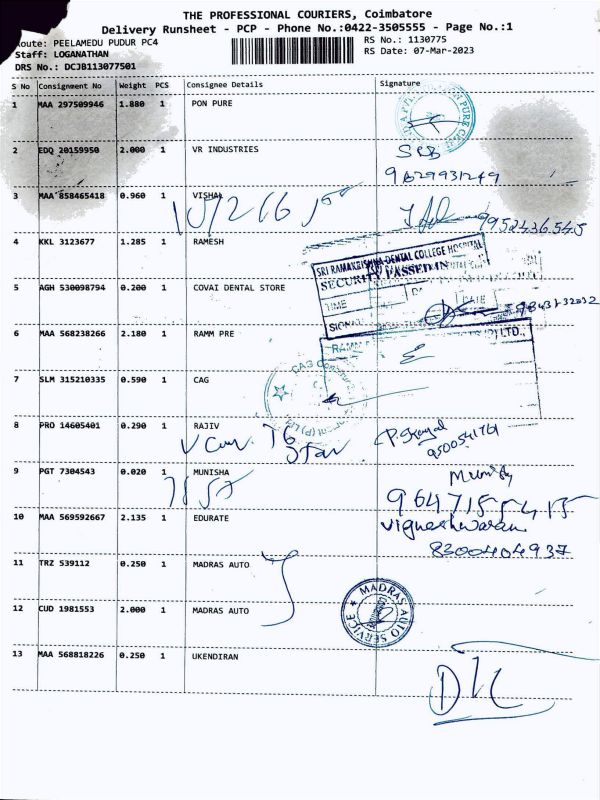 THE PROFESSIONAL COURIERS, Coimbatore
Delivery Runsheet - PCP - Phone No.:0422-3505555 - Page No.:1
Route: PEELAMEDU PUDUR PC4
RS No.: 1130775
Staff: LOGANATHAN
RS Date: 07-Mar-2023
DRS No.: DCJB113077501
S No Consignment No Weight PCS Consignee Details Signature
1 MAA 297509946 1.880 1 PON PURE
2 EDQ 20159950 2.000 1 VR INDUSTRIES
9629931249
3 MAA 858465418 0.960 1 VISHAL
9952436545
4 KKL 3123677 1.285 1 RAMESH
SRI RAMAKRISHNA DENTAL COLLEGE HOSPITAL
SECURITY PASSED IN
TIME
5 AGH 530098794 0.200 1 COVAI DENTAL STORE
6 MAA 568238266 2.180 1 RAMM PRE
7 SLM 315210335 0.590 1 CAG
8 PRO 14605401 0.290 1 RAJIV
9500541761
9 PGT 7304543 0.020 1 MUNISHA
7857
10 MAA 569592667 2.135 1 EDURATE
Vigneshwaran
8300404937
11 TRZ 539112 0.250 1 MADRAS AUTO
12 CUD 1981553 2.000 1 MADRAS AUTO
MADRAS AUTO SERVICE
13 MAA 568818226 0.250 1 UKENDIRAN